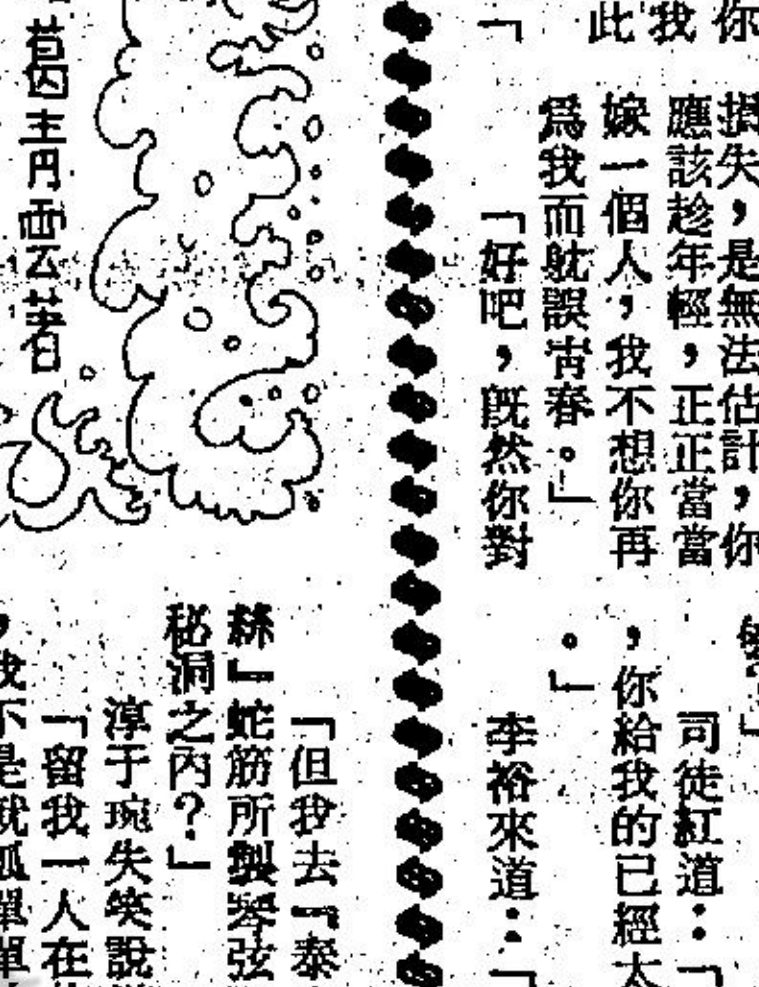 你
我
此
「
損失，是無法估計，你
應該趁年輕，正正當當
嫁一個人，我不想你再
爲我而躭誤靑春。」
「好吧，旣然你對
司徒紅道：「
，你給我的已經太
。」
李裕來道：「
諸葛靑雲著
「但我去『泰
絲』蛇筋所製琴弦
秘洞之內？」
淳于琬失笑說
「留我一人在
，我不是就孤單單